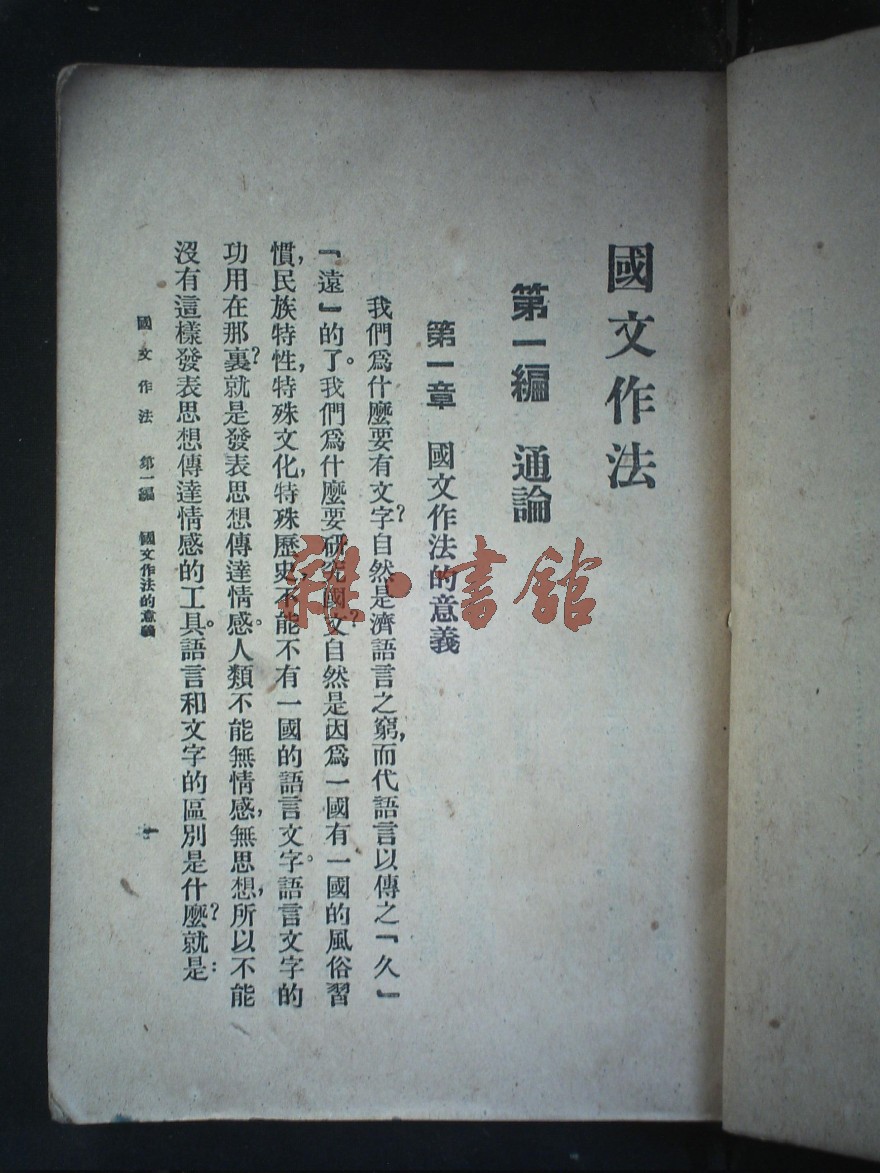 國文作法
第一編　通論
第一章　國文作法的意義
我們爲什麼要有文字?自然是濟語言之窮,而代語言以傳之「久」
「遠」的了。我們爲什麼要研究國文?自然是因爲一國有一國的風俗習
慣,民族特性,特殊文化,特殊歷史,不能不有一國的語言文字。語言文字的
功用在那裏?就是發表思想傳達情感。人類不能無情感,無思想,所以不能
沒有這樣發表思想傳達情感的工具。語言和文字的區別是什麼?就是:
國文作法　第一編　國文作法的意義　一
雜·書館